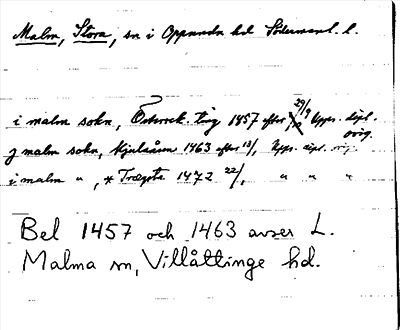 Malm, Stora, sn i Oppunda hd Södermanl. l.
i malm sokn, Österrek. ting 1457 efter 29/9 Upps. dipl. orig.
j malm sokn, 1463 efter 13/1, Upps. dipl. orig.
i malm " , * 1472 22/1, " " "
Bel 1457 och 1463 avser L.
Malma sn, Villåttinge hd.